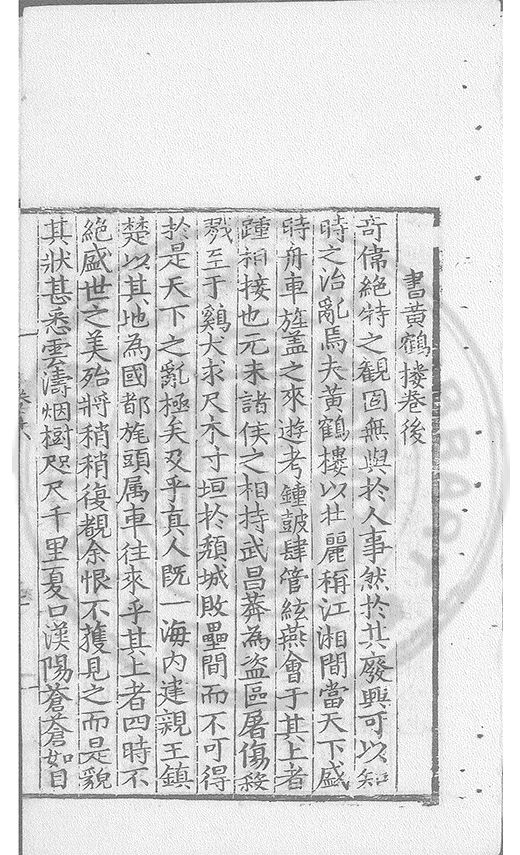 書黃鶴樓卷後
竒偉絶特之觀固無與於人事然於其廢興可以知
時之治亂焉夫黃鶴樓以壯麗稱江湘間當天下盛
時舟車旌蓋之來遊考鍾鼓肆管絃燕會于其上者
踵相接也元末諸侯之相持武昌莽為盗區屠傷殺
戮至于鷄犬求尺木寸垣於頹城敗壘間而不可得
於是天下之亂極矣及乎真人既一海内建親王鎮
楚以其地為國都旄頭属車往來乎其上者四時不
絶盛世之美殆將稍稍復覩余恨不獲見之而是貌
其狀甚悉雲濤烟樹咫尺千里夏口漢陽蒼蒼如目